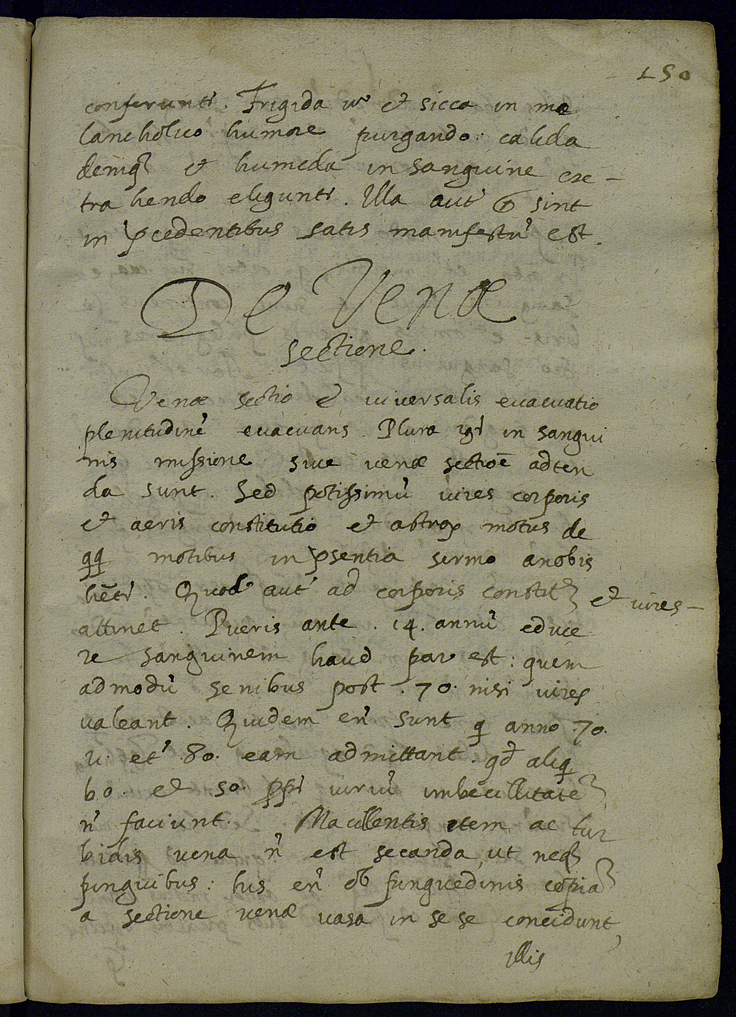 150
conferunt'. Frigida v° et sicca in me
lancholico humore purgando: calida
deniq et humida in sanguine ex-
trahendo eligunt'. Illa aut' sint
in pcedentibus satis manifestu' est.
De Venæ
sectione.
Venæ sectio e' universalis evacuatio
plenitudine' evacuans. Plura igr in sangui
nis missione sive venæ sectioē adten
da sunt. Sed potissimu' vires corporis
et aeris constitutio et astrop motus de
qq motibus in psentia sermo anobis
hēt'. Quod aut' ad corporis constit et vires-
attinet. Pueris ante .14. annu' educe
re sanguinem haud par est: quem
admodu' senibus post .70. nisi vires
valeant. Quidem en' sunt q anno 70.
v. et' 80. eam admittant. qd aliq
60. et 50. ppr viriu' imbecillitate
n' faciunt. Macilentis item ac tur
bidis vena n' est secanda, ut neq
pinguibus: his en' ob pinguedinis copia
a sectione venæ vasa in se se concidunt,
illis